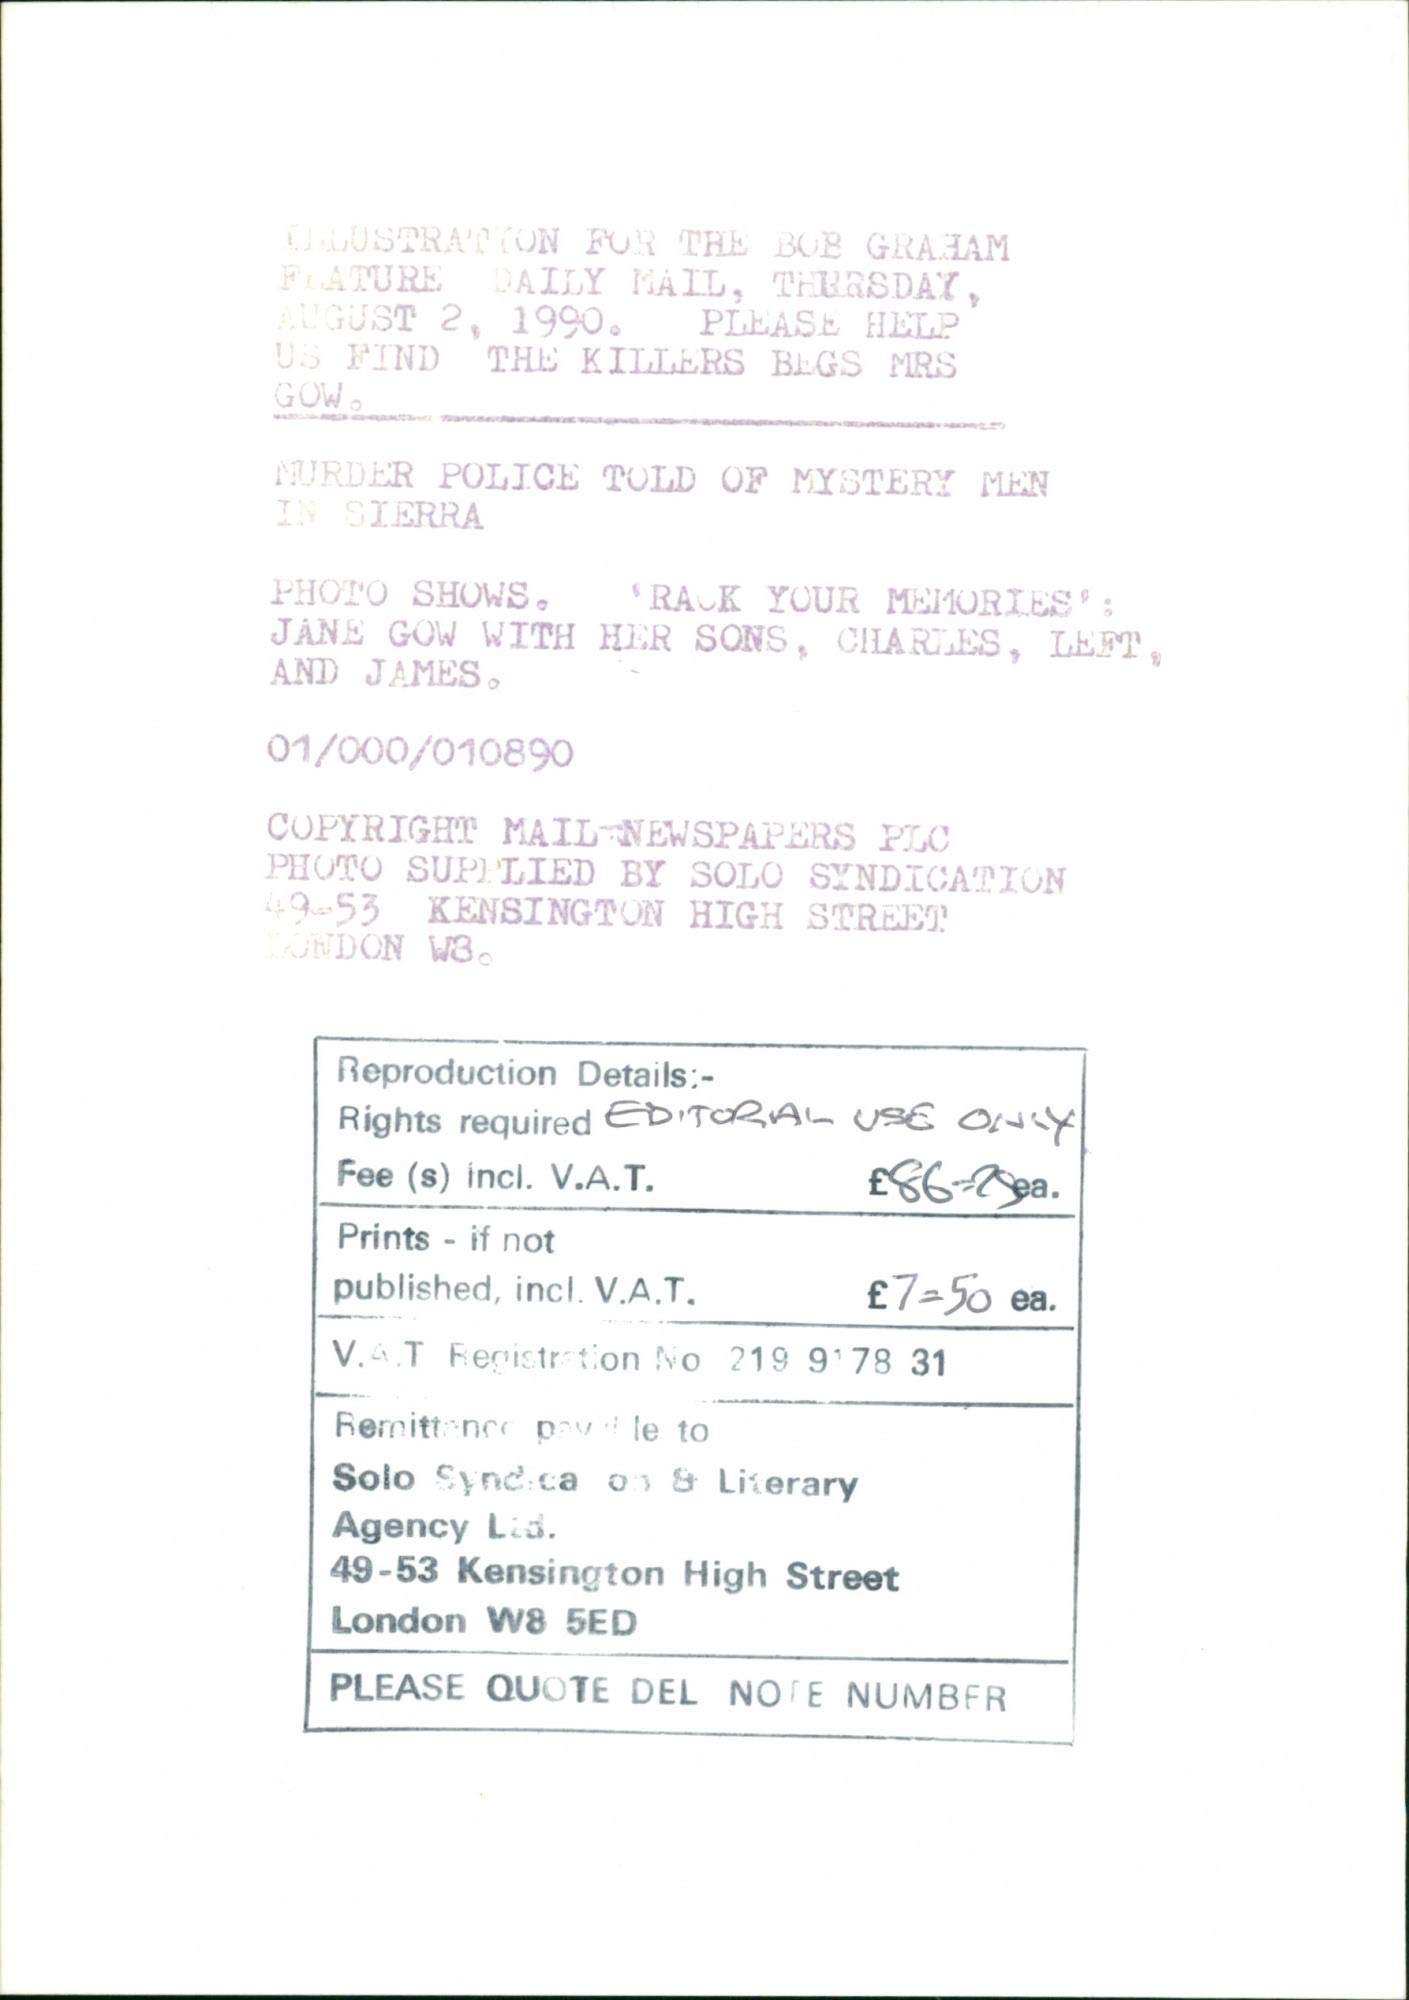 ILLUSTRATION FOR THE BOB GRAHAM
FEATURE DAILY MAIL, THURSDAY,
AUGUST 2, 1990. PLEASE HELP
US FIND THE KILLERS BEGS MRS
GOW.
MURDER POLICE TOLD OF MYSTERY MEN
IN SIERRA
PHOTO SHOWS. 'RACK YOUR MEMORIES':
JANE GOW WITH HER SONS, CHARLES, LEFT,
AND JAMES.
01/000/010890
COPYRIGHT MAIL-NEWSPAPERS PLC
PHOTO SUPPLIED BY SOLO SYNDICATION
49-53 KENSINGTON HIGH STREET
LONDON W8.
Reproduction Details:-
Rights required EDITORIAL USE ONLY
Fee (s) incl. V.A.T. £ ea.
Prints - if not
published, incl. V.A.T. £7=50 ea.
V.A.T Registration No 219 78 31
Remittance payable to
Solo Syndication & Literary
Agency Ltd.
49-53 Kensington High Street
London W8 5ED
PLEASE QUOTE DEL NOTE NUMBER